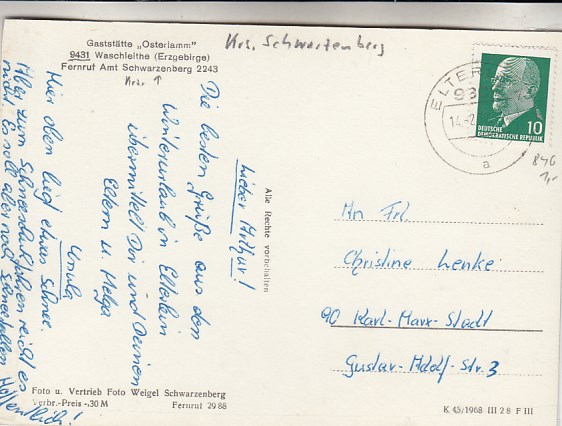 Gaststätte „Osterlamm"
9431 Waschleithe (Erzgebirge)
Fernruf Amt Schwarzenberg 2243
Krs. ↑
Krs. Schwarzenberg
Lieber Arthur!
Die besten Grüße aus dem
Winterurlaub in Elterlein
übermittelt Dir und Deinen
Eltern u. Helga
Ursula
Hier oben liegt etwas Schnee.
Aber zum Schneeschuhfahren reicht es
nicht. Es soll aber noch Schnee fallen. Hoffentlich!
Alle Rechte vorbehalten
ELTER
93
14.-2
a
DEUTSCHE
DEMOKRATISCHE REPUBLIK
10
846
1,-
An Frl.
Christine Lenke
90 Karl-Marx-Stadt
Gustav-Adolf-Str. 3
Foto u. Vertrieb Foto Weigel Schwarzenberg
Verbr.-Preis -,30 M Fernruf 29 88
K 45/1968 III 2 8 F III